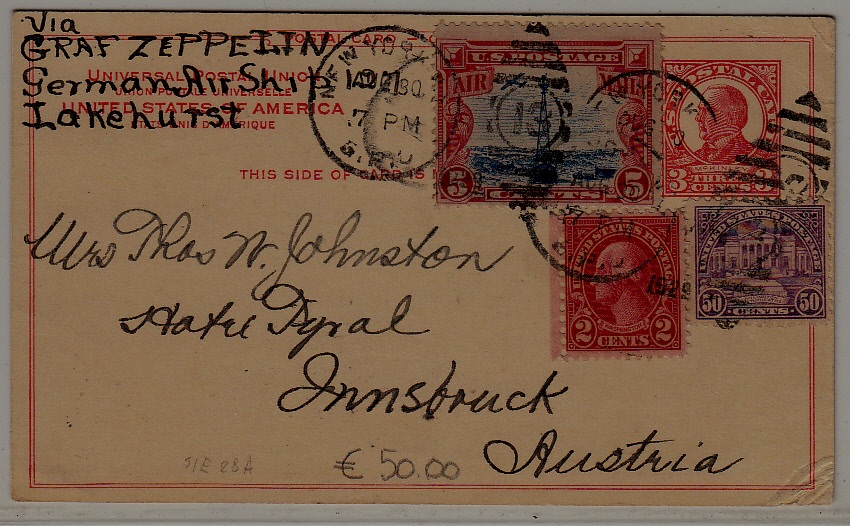 Via
GRAF ZEPPELIN
German Air Ship
Lakehurst
POSTAL CARD
UNIVERSAL POSTAL UNION
UNION POSTALE UNIVERSELLE
UNITED STATES OF AMERICA
ÉTATS-UNIS D'AMÉRIQUE
THIS SIDE OF CARD IS
NEW YORK
AUG 21
7 PM
U.S. POSTAGE
AIR MAIL
5 5
U.S. POSTAL CARD
MCKINLEY
3 THREE 3
CENTS
UNITED STATES POSTAGE
WASHINGTON
2 CENTS 2
UNITED STATES POSTAGE
50 50
CENTS
1929
Mrs Thos W. Johnston
Hotel Tyrol
Innsbruck
Austria
S/E 28A
€ 50.00